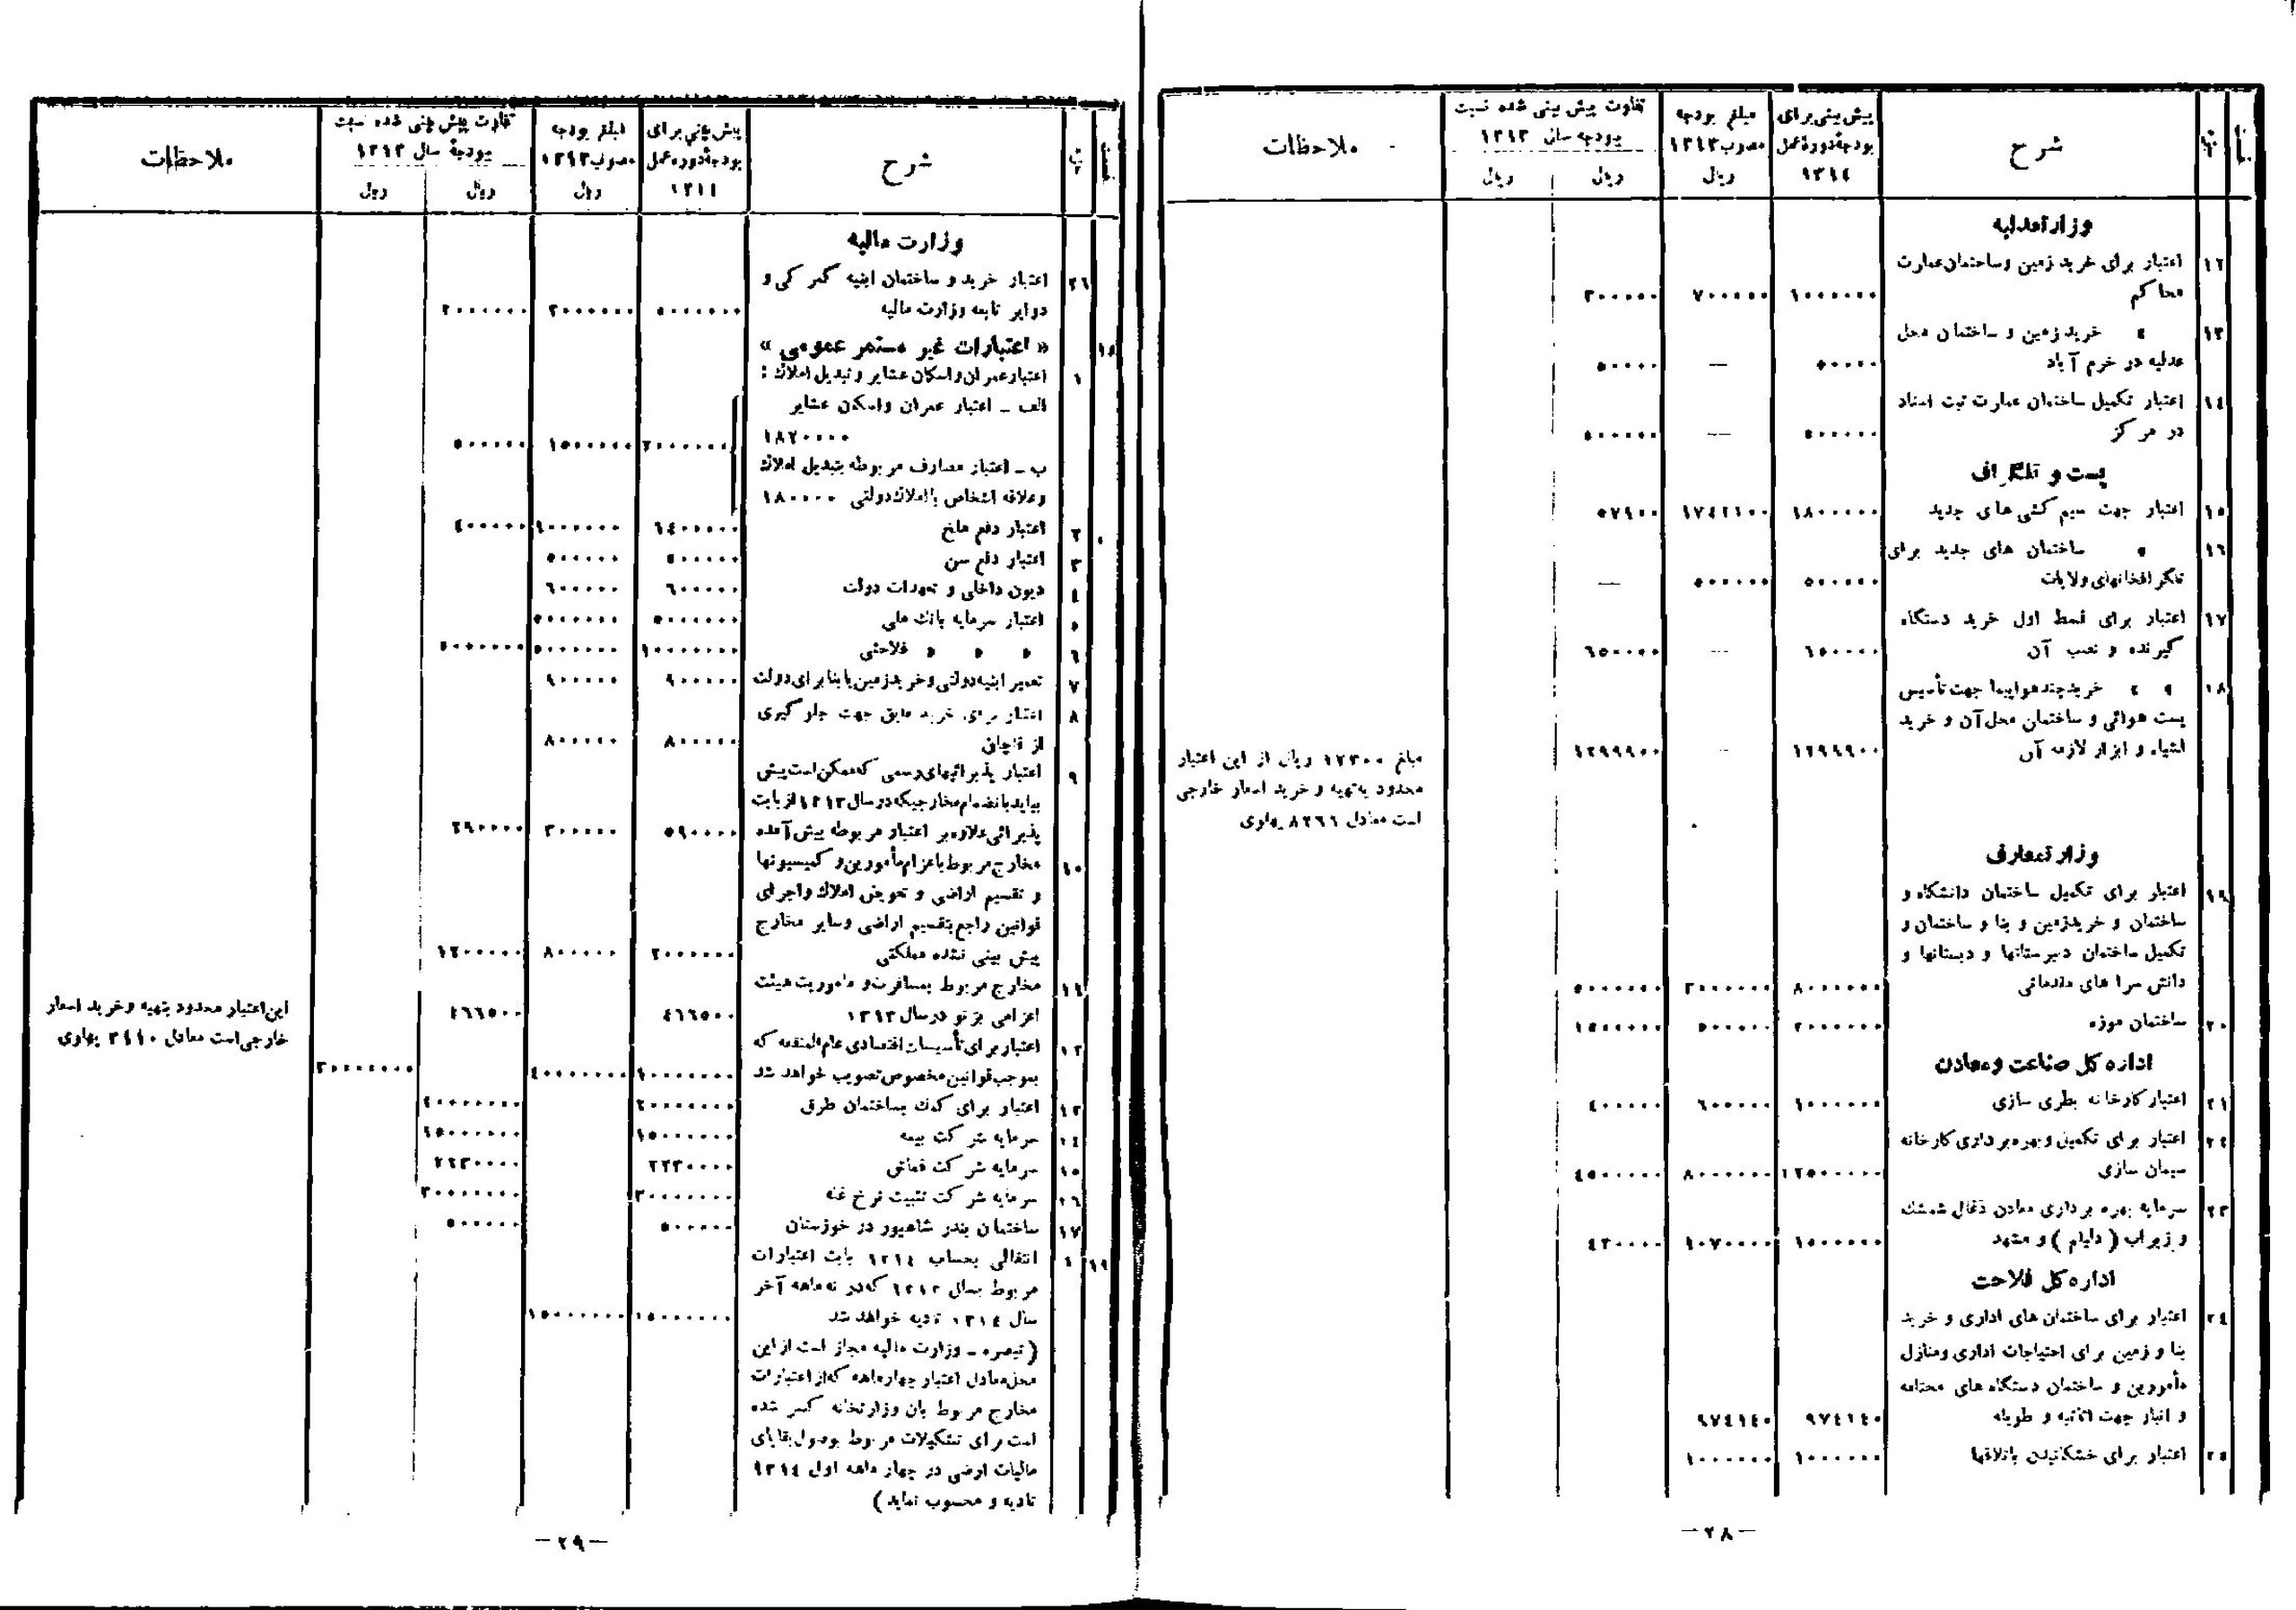 ملاحظات
تفاوت پیش بینی شده نسبت
بودجه سال ۱۳۱۳
ریال
ریال
مبلغ بودجه
مصوب ۱۳۱۳
ریال
پیش بینی برای
بودجهٔ دورهٔ عمل
۱۳۱٤
شرح
جزء
وزارت عدلیه
۱۲ اعتبار برای خرید زمین و ساختمان عمارت
محاکم ۱۰۰۰۰۰۰ ۷۰۰۰۰۰ ۳۰۰۰۰۰
۱۳ » خرید زمین و ساختمان محل
عدلیه در خرم آباد ۵۰۰۰۰ — ۵۰۰۰۰
۱٤ اعتبار تکمیل ساختمان عمارت ثبت اسناد
در مرکز ۵۰۰۰۰۰ — ۵۰۰۰۰۰
پست و تلگراف
۱۵ اعتبار جهت سیم کشی های جدید ۱۸۰۰۰۰۰ ۱۷٤۲۱۰۰ ۵۷۹۰۰
۱٦ » ساختمان های جدید برای
تلگرافخانهای ولایات ۵۰۰۰۰۰ ۵۰۰۰۰۰ —
۱۷ اعتبار برای قسط اول خرید دستگاه
گیرنده و نصب آن ٦۵۰۰۰۰ — ٦۵۰۰۰۰
۱۸ » » خرید چند هواپیما جهت تأسیس
پست هوائی و ساختمان محل آن و خرید
اشیاء و ابزار لازمه آن ۱۲۹۹۹۰۰ — ۱۲۹۹۹۰۰
مبلغ ریال از این اعتبار
محدود به تهیه و خرید اسعار خارجی
است معادل پهلوی
وزارت معارف
۱۹ اعتبار برای تکمیل ساختمان دانشگاه و
ساختمان و خرید زمین و بنا و ساختمان و
تکمیل ساختمان دبیرستانها و دبستانها و
دانش سرا های مقدماتی ۸۰۰۰۰۰۰ ۳۰۰۰۰۰۰ ۵۰۰۰۰۰۰
۲۰ ساختمان موزه ۲۰۰۰۰۰۰ ۵۰۰۰۰۰ ۱۵۰۰۰۰۰
اداره کل صناعت و معادن
۲۱ اعتبار کارخانه بطری سازی ۱۰۰۰۰۰۰ ٦۰۰۰۰۰ ٤۰۰۰۰۰
۲۲ اعتبار برای تکمیل و بهره برداری کارخانه
سیمان سازی ۱۲۵۰۰۰۰۰ ۸۰۰۰۰۰۰ ٤۵۰۰۰۰۰
۲۳ سرمایه بهره برداری معادن ذغال شمشک
و زیراب و مشهد ۱۵۰۰۰۰۰ ۱۰۷۰۰۰۰ ٤۳۰۰۰۰
اداره کل فلاحت
۲٤ اعتبار برای ساختمان های اداری و خرید
بنا و زمین برای احتیاجات اداری و منازل
مأمورین و ساختمان دستگاه های مختلفه
و انبار جهت اثاثیه و طویله ۹۷٤۱٤۰ ۹۷٤۱٤۰
۲۵ اعتبار برای خشکانیدن باتلاقها ۱۰۰۰۰۰۰ ۱۰۰۰۰۰۰
—۲۸—
ملاحظات
تفاوت پیش بینی شده نسبت
بودجهٔ سال ۱۳۱۳
ریال
ریال
مبلغ بودجه
مصوب ۱۳۱۳
ریال
پیش بینی برای
بودجهٔ دورهٔ عمل
۱۳۱٤
شرح
جزء
قسمت
وزارت مالیه
۲٦ اعتبار خرید و ساختمان ابنیه گمرکی و
دوایر تابعه وزارت مالیه ۵۰۰۰۰۰۰ ۲۰۰۰۰۰۰ ۳۰۰۰۰۰۰
۱۵ « اعتبارات غیر مستمر عمومی »
۱ اعتبار عمران و اسکان عشایر و تبدیل املاک :
الف ـ اعتبار عمران و اسکان عشایر
۱۸۲۰۰۰۰
۲۰۰۰۰۰۰ ۱۵۰۰۰۰۰ ۵۰۰۰۰۰
ب ـ اعتبار مصارف مربوطه بتبدیل املاک
و علاقه اشخاص با املاک دولتی ۱۸۰۰۰۰
۲ اعتبار دفع ملخ ۱٤۰۰۰۰۰ ۱۰۰۰۰۰۰ ٤۰۰۰۰۰
۳ اعتبار دفع سن ۵۰۰۰۰۰ ۵۰۰۰۰۰
٤ دیون داخلی و تعهدات دولت ٦۰۰۰۰۰ ٦۰۰۰۰۰
۵ اعتبار سرمایه بانک ملی ۵۰۰۰۰۰۰ ۵۰۰۰۰۰۰
٦ » » » فلاحتی ۱۰۰۰۰۰۰۰ ۵۰۰۰۰۰۰ ۵۰۰۰۰۰۰
۷ تعمیر ابنیه دولتی و خرید زمین یا بنا برای دولت ۹۰۰۰۰۰ ۹۰۰۰۰۰
۸ اعتبار برای خرید قایق جهت جلوگیری
از قاچاق ۸۰۰۰۰۰ ۸۰۰۰۰۰
۹ اعتبار پذیرائیهای رسمی که ممکن است پیش
بیاید بانضمام مخارجیکه در سال ۱۳۱۳ از بابت
پذیرائی علاوه بر اعتبار مربوطه پیش آمده ۵۹۰۰۰۰ ۳۰۰۰۰۰ ۲۹۰۰۰۰
۱۰ مخارج مربوط باعزام مأمورین و کمیسیونها
و تقسیم اراضی و تعویض املاک و اجرای
قوانین راجع بتقسیم اراضی و سایر مخارج
پیش بینی نشده مملکتی ۲۰۰۰۰۰۰ ۸۰۰۰۰۰ ۱۲۰۰۰۰۰
۱۱ مخارج مربوط بمسافرت و مأموریت هیئت
اعزامی بژنو در سال ۱۳۱۳ ٤٦٦۵۰۰ ٤٦٦۵۰۰
این اعتبار محدود بتهیه و خرید اسعار
خارجی است معادل پهلوی
۱۲ اعتبار برای تأسیسات اقتصادی عام المنفعه که
بموجب قوانین مخصوص تصویب خواهد شد ۱۰۰۰۰۰۰۰ ٤۰۰۰۰۰۰۰ ۳۰۰۰۰۰۰۰
۱۳ اعتبار برای کمک بساختمان طرق
۱٤ سرمایه شرکت بیمه ۱۵۰۰۰۰۰۰ ۱۵۰۰۰۰۰۰
۱۵ سرمایه شرکت قماش
۱٦ سرمایه شرکت تثبیت نرخ غله ۳۰۰۰۰۰۰۰ ۳۰۰۰۰۰۰۰
۱۷ ساختمان بندر شاهپور در خوزستان ۵۰۰۰۰۰ ۵۰۰۰۰۰
۱٦ ۱ انتقالی بحساب ۱۳۱٤ بابت اعتبارات
مربوط بسال ۱۳۱۳ که در نه ماهه آخر
سال ۱۳۱٤ تادیه خواهد شد ۱۵۰۰۰۰۰۰ ۱۵۰۰۰۰۰۰
(تبصره ـ وزارت مالیه مجاز است از این
محل معادل اعتبار چهارماهه که از اعتبارات
مخارج مربوط بان وزارتخانه کسر شده
است برای تشکیلات مربوط بوصول بقایای
مالیات ارضی در چهار ماهه اول ۱۳۱٤
تادیه و محسوب نماید)
—۲۹—